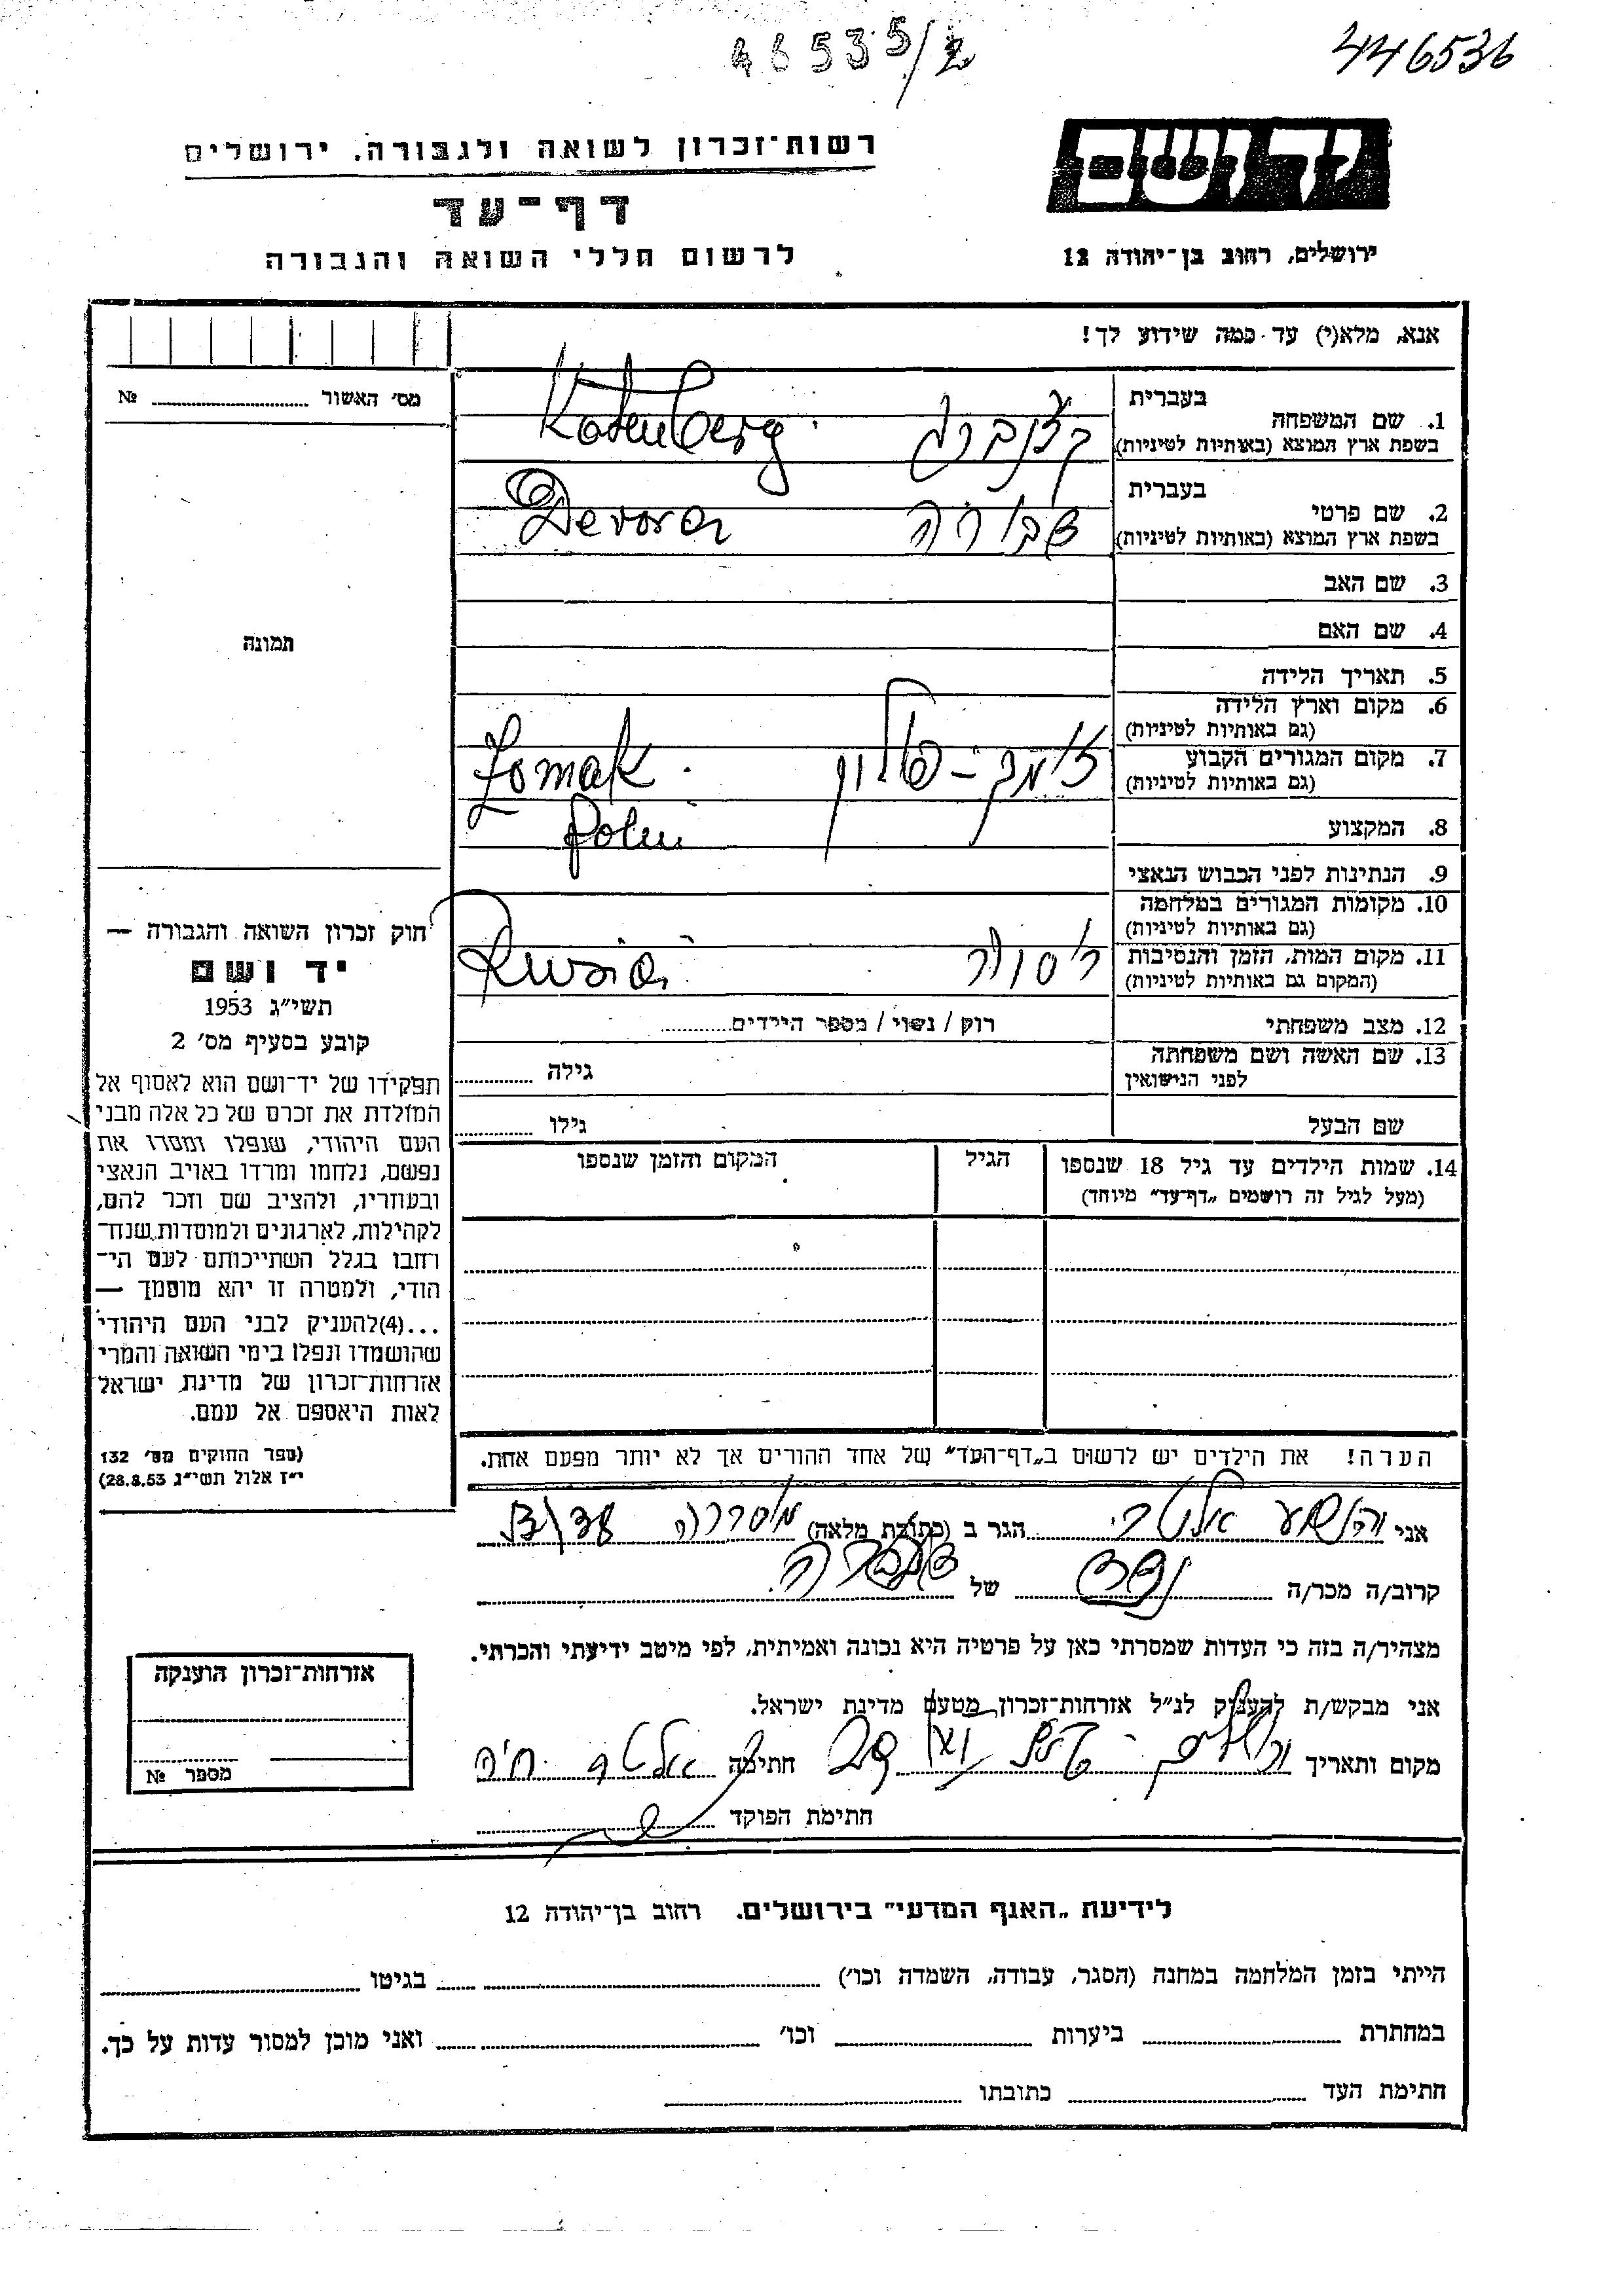 46535/2
446536
יד ושם
רשות־זכרון לשואה ולגבורה, ירושלים
דף־עד
לרשום חללי השואה והגבורה
ירושלים, רחוב בן־יהודה 12
אנא, מלא(י) עד כמה שידוע לך!
מס׳ האשור ........ №
1. שם המשפחה
בעברית
בשפת ארץ המוצא (באותיות לטיניות)
קצנברג Katenberg
2. שם פרטי
בעברית
בשפת ארץ המוצא (באותיות לטיניות)
דבורה Devora
3. שם האב
4. שם האם
תמונה
5. תאריך הלידה
6. מקום וארץ הלידה
(גם באותיות לטיניות)
7. מקום המגורים הקבוע
(גם באותיות לטיניות)
פולין
8. המקצוע
9. הנתינות לפני הכבוש הנאצי
10. מקומות המגורים במלחמה
(גם באותיות לטיניות)
11. מקום המות, הזמן והנסיבות
(המקום גם באותיות לטיניות)
12. מצב משפחתי
רווק / נשוי / מספר הילדים........
13. שם האשה ושם משפחתה
לפני הנישואין
גילה ........
שם הבעל
גילו ........
14. שמות הילדים עד גיל 18 שנספו
(מעל לגיל זה רושמים „דף־עד״ מיוחד)
הגיל
המקום והזמן שנספו
חוק זכרון השואה והגבורה —
יד ושם
תשי״ג 1953
קובע בסעיף מס׳ 2
תפקידו של יד־ושם הוא לאסוף אל
המולדת את זכרם של כל אלה מבני
העם היהודי, שנפלו ומסרו את
נפשם, נלחמו ומרדו באויב הנאצי
ובעוזריו, ולהציב שם וזכר להם,
לקהילות, לארגונים ולמוסדות שנח־
רחבו בגלל השתייכותם לעם הי־
הודי, ולמטרה זו יהא מוסמך —
...(4)להעניק לבני העם היהודי
שהושמדו ונפלו בימי השואה והמרי
אזרחות־זכרון של מדינת ישראל
לאות היאספם אל עמם.
(ספר החוקים מס׳ 132
י״ז אלול תשי״ג 28.8.53)
הערה! את הילדים יש לרשום ב„דף־העד״ של אחד ההורים אך לא יותר מפעם אחת.
אני יהושע הגר ב (כתובת מלאה)
קרוב/ה מכר/ה נכד של
מצהיר/ה בזה כי העדות שמסרתי כאן על פרטיה היא נכונה ואמיתית, לפי מיטב ידיעתי והכרתי.
אני מבקש/ת להעניק לנ״ל אזרחות־זכרון מטעם מדינת ישראל.
מקום ותאריך ירושלים חתימה
חתימת הפוקד
אזרחות־זכרון הוענקה
מספר №
לידיעת „האגף המדעי״ בירושלים. רחוב בן־יהודה 12
הייתי בזמן המלחמה במחנה (הסגר, עבודה, השמדה וכו׳) ........ בגיטו ........
במחתרת ........ ביערות ........ וכו׳ ........ ואני מוכן למסור עדות על כך.
חתימת העד ........ כתובתו ........